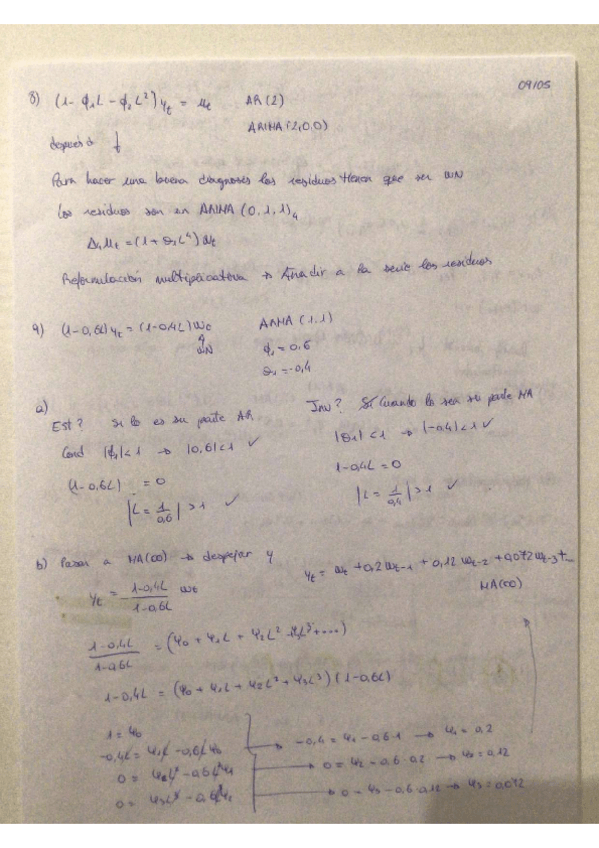 09/05
8) (1 - ϕ₁L - ϕ₂L²) yₜ = uₜ AR(2)
ARIMA (2,0,0)
después ↓
Para hacer una buena diagnosis los residuos tienen que ser WN
Los residuos son en ARIMA (0,1,1)₄
Δ₄uₜ = (1 + θ₁L⁴) wₜ
Reformulación multiplicativa → Añadir a la serie los residuos
9) (1-0,6L) yₜ = (1-0,4L) wₜ ARMA (1,1)
WN ϕ₁ = 0,6
θ₁ = -0,4
a)
Est? Si lo es su parte AR
Cond |ϕ₁| < 1 → |0,6| < 1 ✓
(1-0,6L) = 0
|L = 1/0,6| > 1 ✓
Inv? Sí cuando lo sea su parte MA
|θ₁| < 1 → |-0,4| < 1 ✓
1-0,4L = 0
|L = 1/0,4| > 1 ✓
b) Pasar a MA(∞) → despejar y
yₜ = (1-0,4L)/(1-0,6L) wₜ
yₜ = wₜ + 0,2wₜ₋₁ + 0,12wₜ₋₂ + 0,072wₜ₋₃ + ...
MA(∞)
(1-0,4L)/(1-0,6L) = (Ψ₀ + Ψ₁L + Ψ₂L² + Ψ₃L³ + ....)
1-0,4L = (Ψ₀ + Ψ₁L + Ψ₂L² + Ψ₃L³) (1-0,6L)
1 = Ψ₀
-0,4L = Ψ₁L - 0,6LΨ₀ → -0,4 = Ψ₁ - 0,6·1 → Ψ₁ = 0,2
0 = Ψ₂L² - 0,6L²Ψ₁ → 0 = Ψ₂ - 0,6·0,2 → Ψ₂ = 0,12
0 = Ψ₃L³ - 0,6L³Ψ₂ → 0 = Ψ₃ - 0,6·0,12 → Ψ₃ = 0,072